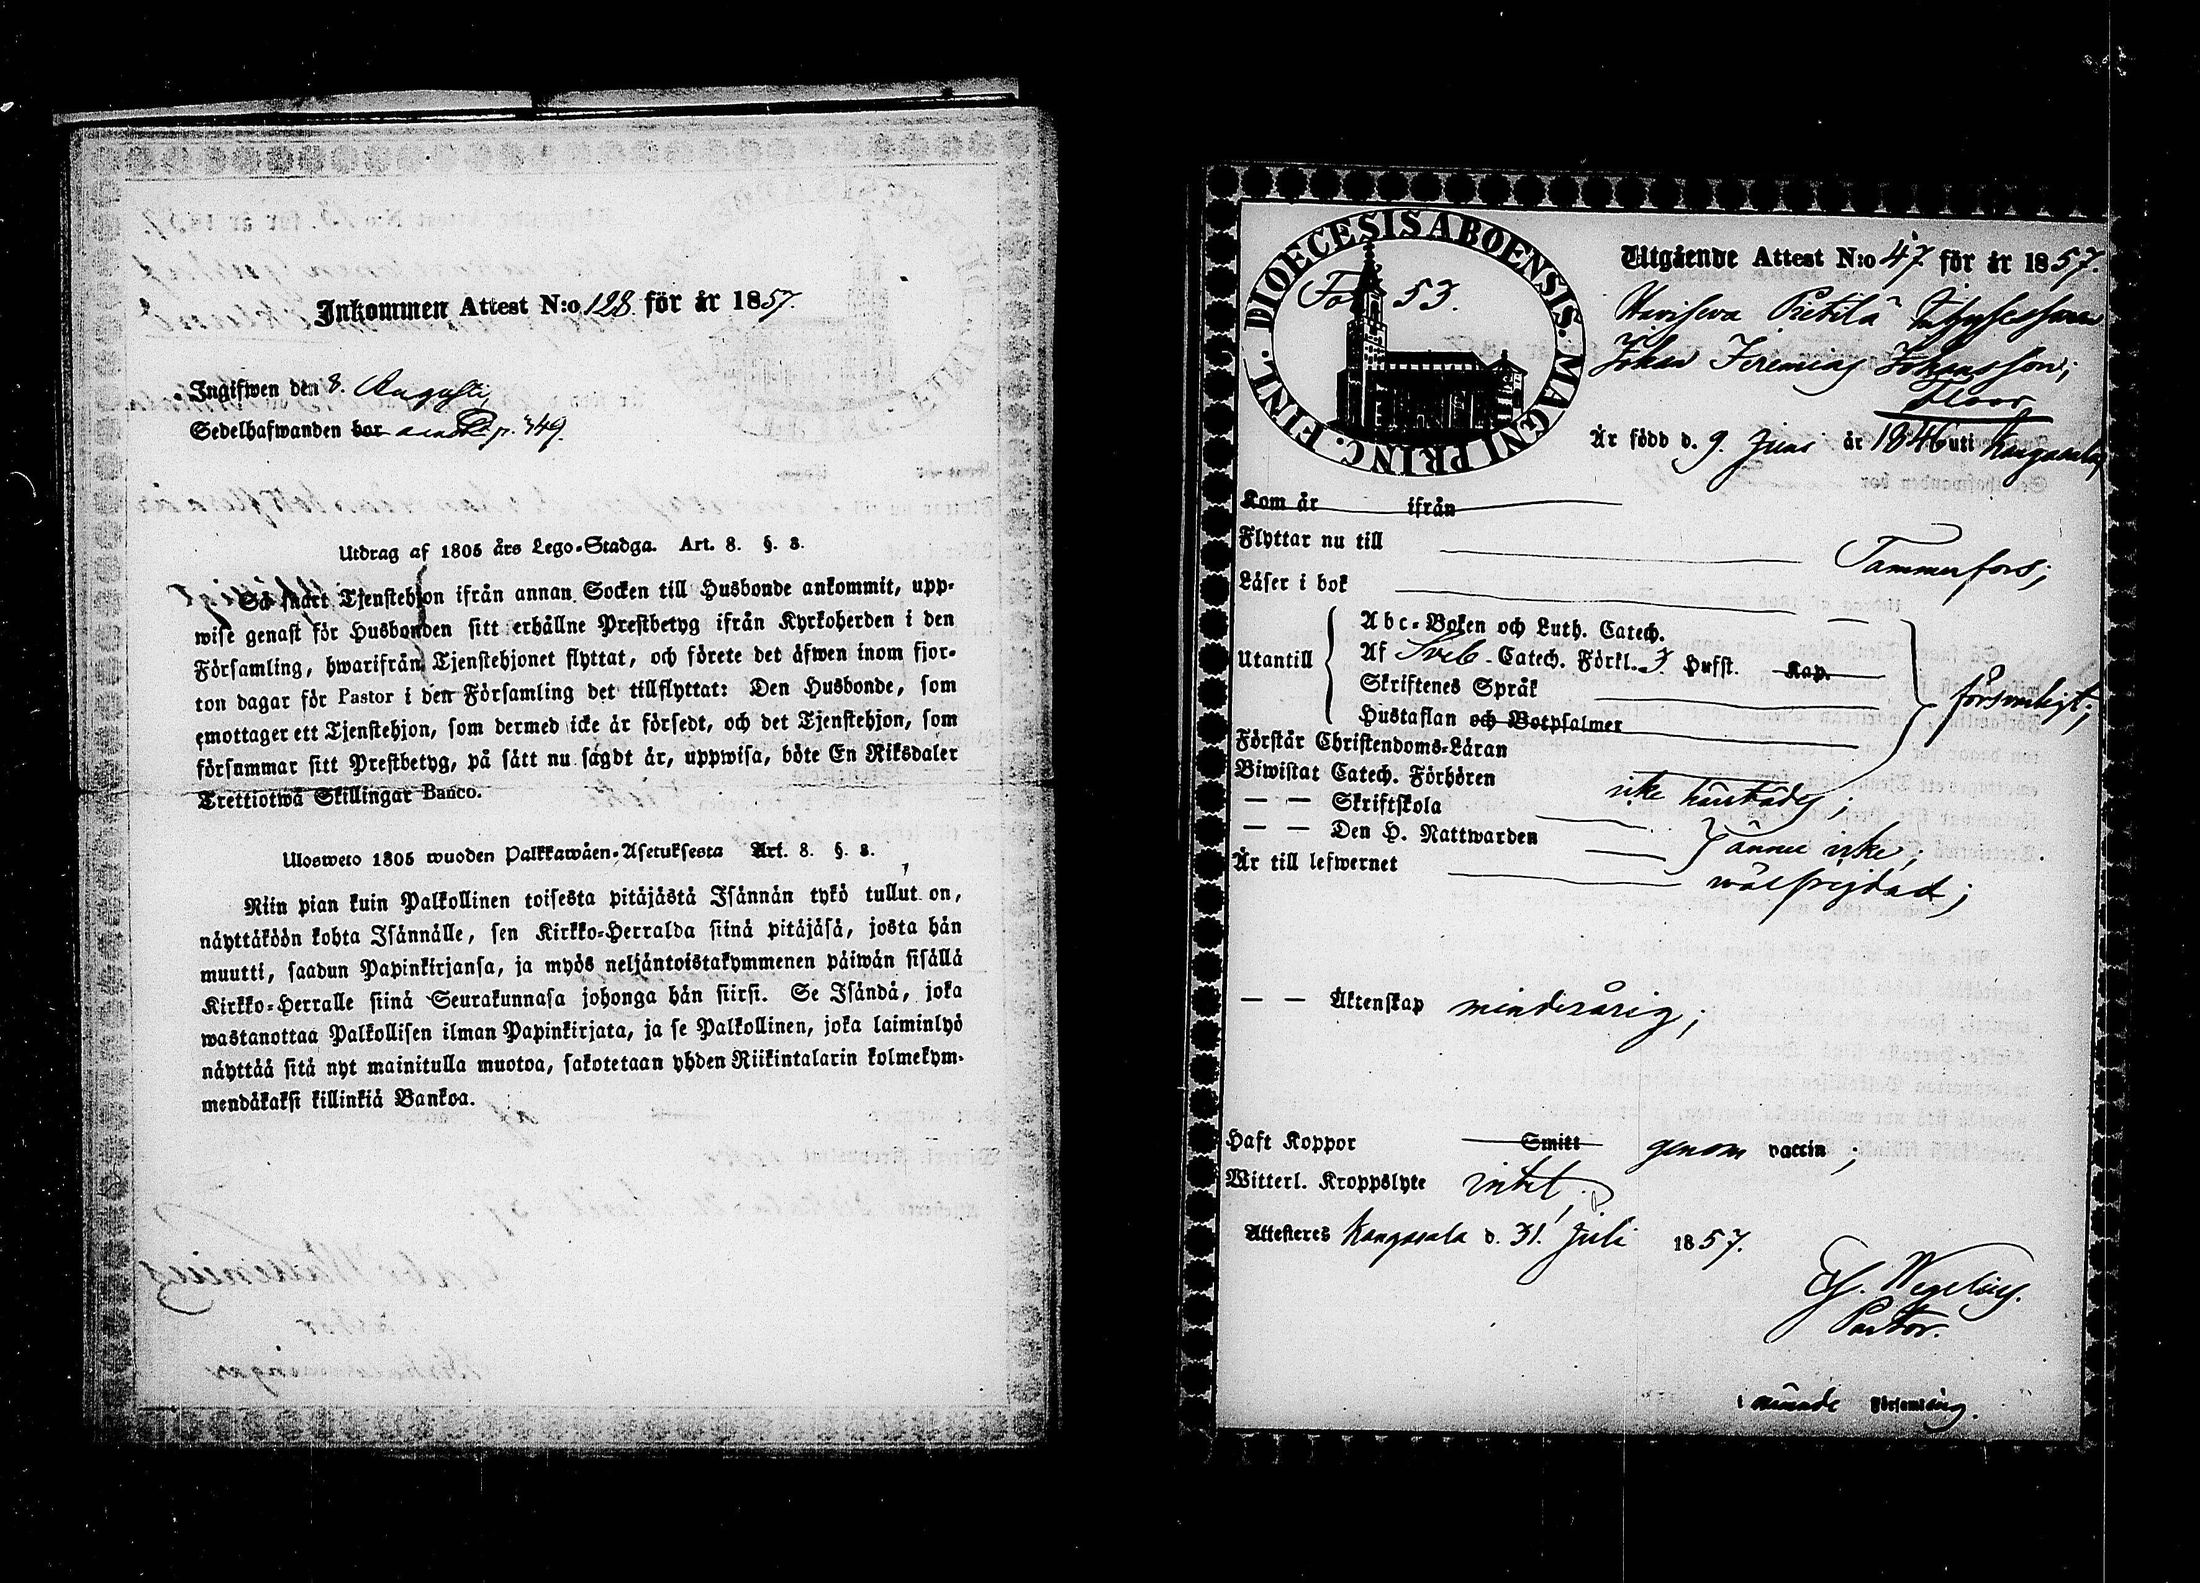 Inkommen Attest N:o 128. för år 1857.
Ingifwen den 8. Augusti
Sedelhafwanden bor p. 349.
Utdrag af 1805 års Lego-Stadga. Art. 8. §. 8.
Så snart Tjenstehjon ifrån annan Socken till Husbonde ankommit, upp-
wise genast för Husbonden sitt erhållne Prestbetyg ifrån Kyrkoherden i den
Församling, hwarifrån Tjenstehjonet flyttat, och förete det äfwen inom fjor-
ton dagar för Pastor i den Församling det tillflyttat: Den Husbonde, som
emottager ett Tjenstehjon, som dermed icke är försedt, och det Tjenstehjon, som
försummar sitt Prestbetyg, på sätt nu sagdt är, uppwisa, böte En Riksdaler
Trettiotwå Skillingar Banco.
Ulosweto 1805 wuoden Palkkawäen-Asetuksesta Art. 8. §. 8.
Niin pian kuin Palkollinen toisesta pitäjästä Isännän tykö tullut on,
näyttäköön kohta Isännälle, sen Kirkko-Herralda siinä pitäjäsä, josta hän
muutti, saadun Papinkirjansa, ja myös neljäntoistakymmenen päiwän sisällä
Kirkko-Herralle siinä Seurakunnasa johonga hän siirsi. Se Isändä, joka
wastanottaa Palkollisen ilman Papinkirjata, ja se Palkollinen, joka laiminlyö
näyttää sitä nyt mainitulla muotoa, sakotetaan yhden Riikintalarin kolmekym-
mendäkaksi killinkiä Bankoa.
DIOECESIS ABOENSIS. MAGNI PRINC. FINL.
Fol 53.
Utgående Attest N:o 47 för år 1857.
Haviseva Pietilä
Johan Jeremias Johansson;
Är född d. 9. Juni år 1846 uti Kangasala
Kom år ifrån
Flyttar nu till Tammerfors;
Läser i bok
Utantill
Abc-Boken och Luth. Catech.
Af Sveb. Catech. Förkl. 3 Hufst. Kap.
Skriftenes Språk
Hustaflan och Botpsalmer
försvarligt;
Förstår Christendoms-Läran
Biwistat Catech. Förhören icke
— — Skriftskola
— — Den H. Nattwarden ännu icke;
Är till lefwernet wälfrejdad;
— — Äktenskap minderårig;
Haft Koppor Smitt genom vaccin;
Witterl. Kroppslyte intet.
Attesteres Kangasala d. 31. Juli 1857.
Wegelius.
Pastor.
i nämnde Församling.